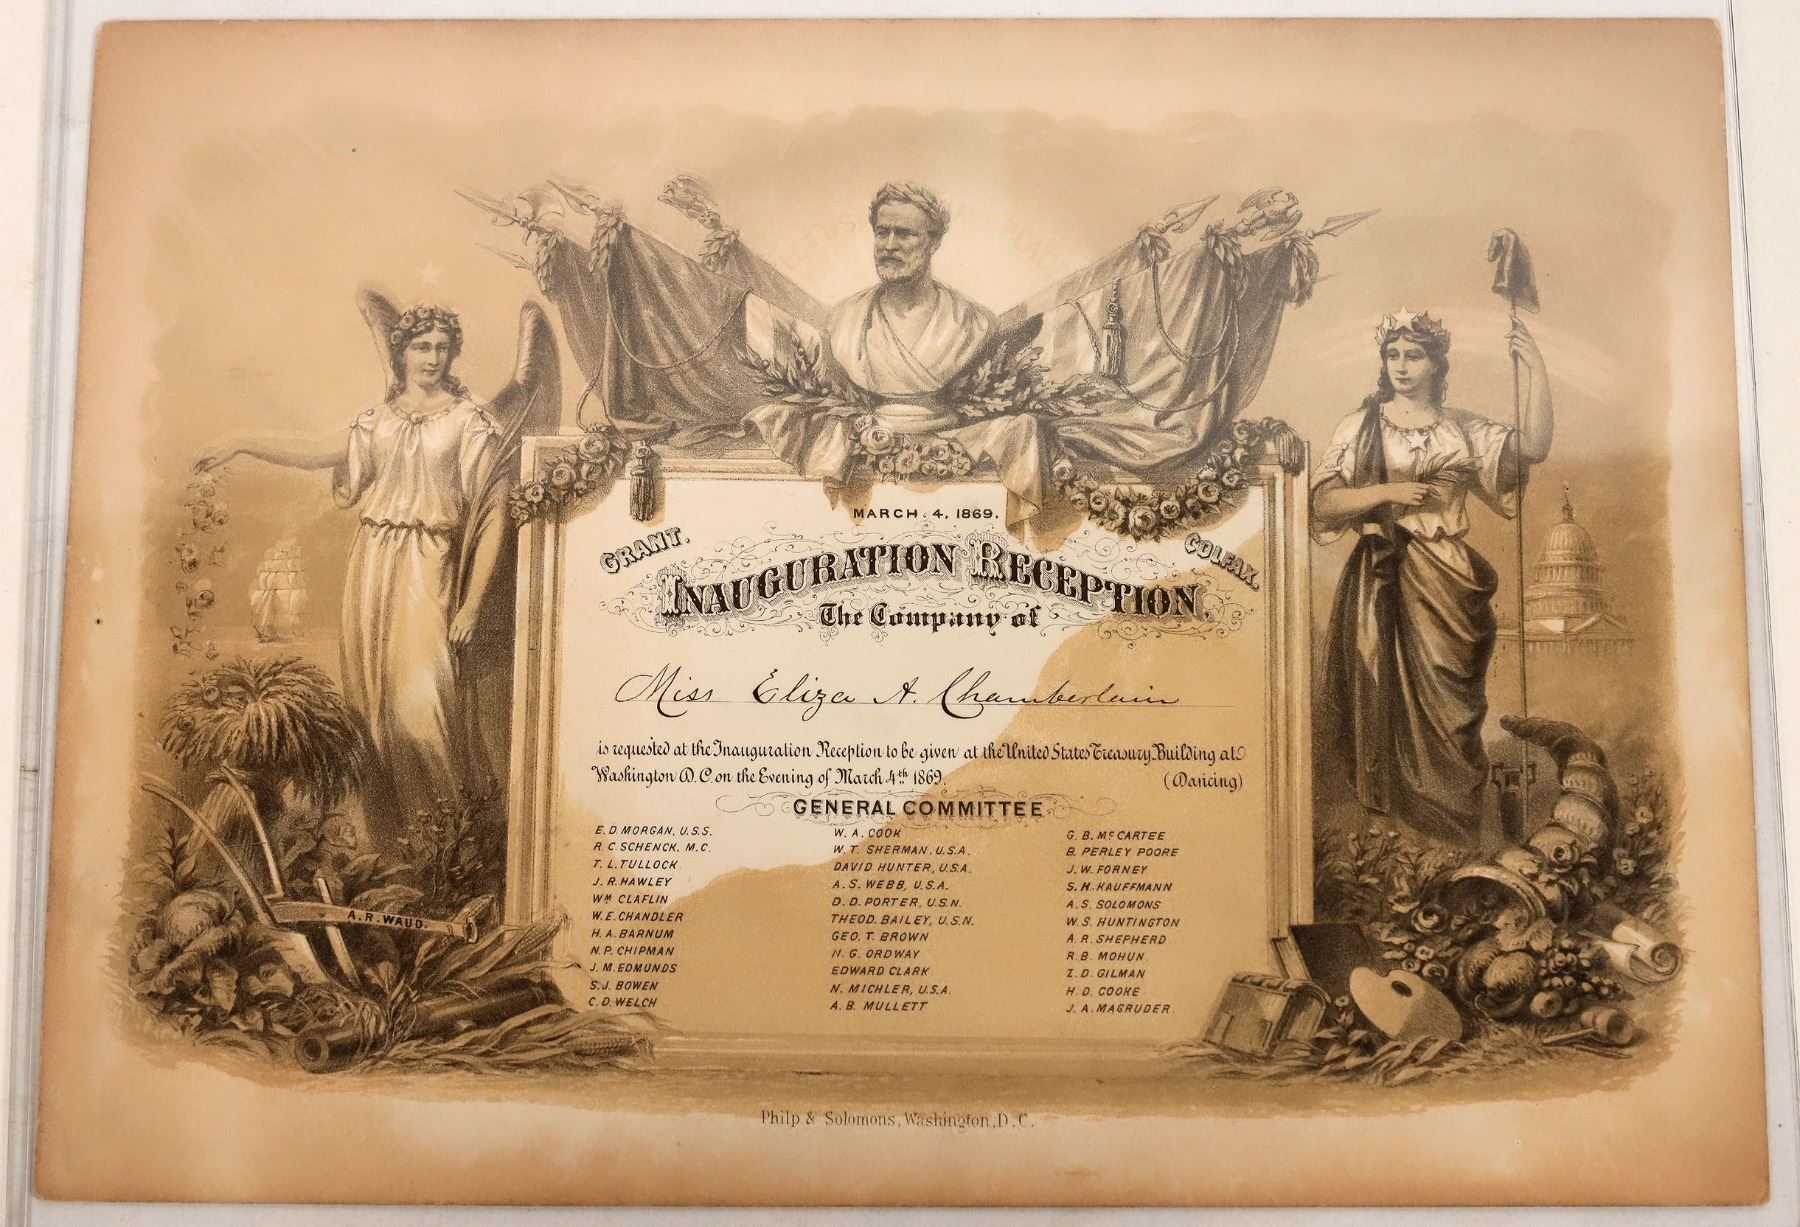 MARCH. 4, 1869.
GRANT. COLFAX.
INAUGURATION RECEPTION.
The Company of
Miss Eliza A. Chamberlain
is requested at the Inauguration Reception to be given at the United States Treasury Building at
Washington D.C. on the Evening of March 4th 1869. (Dancing)
GENERAL COMMITTEE
E. D. MORGAN, U.S.S.
R. C. SCHENCK, M.C.
T. L. TULLOCK
J. R. HAWLEY
WM CLAFLIN
W. E. CHANDLER
H. A. BARNUM
N. P. CHIPMAN
J. M. EDMUNDS
S. J. BOWEN
C. D. WELCH
W. A. COOK
W. T. SHERMAN, U.S.A.
DAVID HUNTER, U.S.A.
A. S. WEBB, U.S.A.
D. D. PORTER, U.S.N.
THEOD. BAILEY, U.S.N.
GEO. T. BROWN
N. G. ORDWAY
EDWARD CLARK
N. MICHLER, U.S.A.
A. B. MULLETT
G. B. McCARTEE
B. PERLEY POORE
J. W. FORNEY
S. H. KAUFFMANN
A. S. SOLOMONS
W. S. HUNTINGTON
A. R. SHEPHERD
R. B. MOHUN
Z. D. GILMAN
H. D. COOKE
J. A. MAGRUDER.
A. R. WAUD.
Philp & Solomons, Washington, D.C.